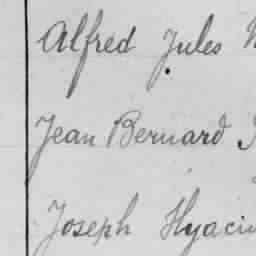 Alfred Jules
Jean Bernard
Joseph